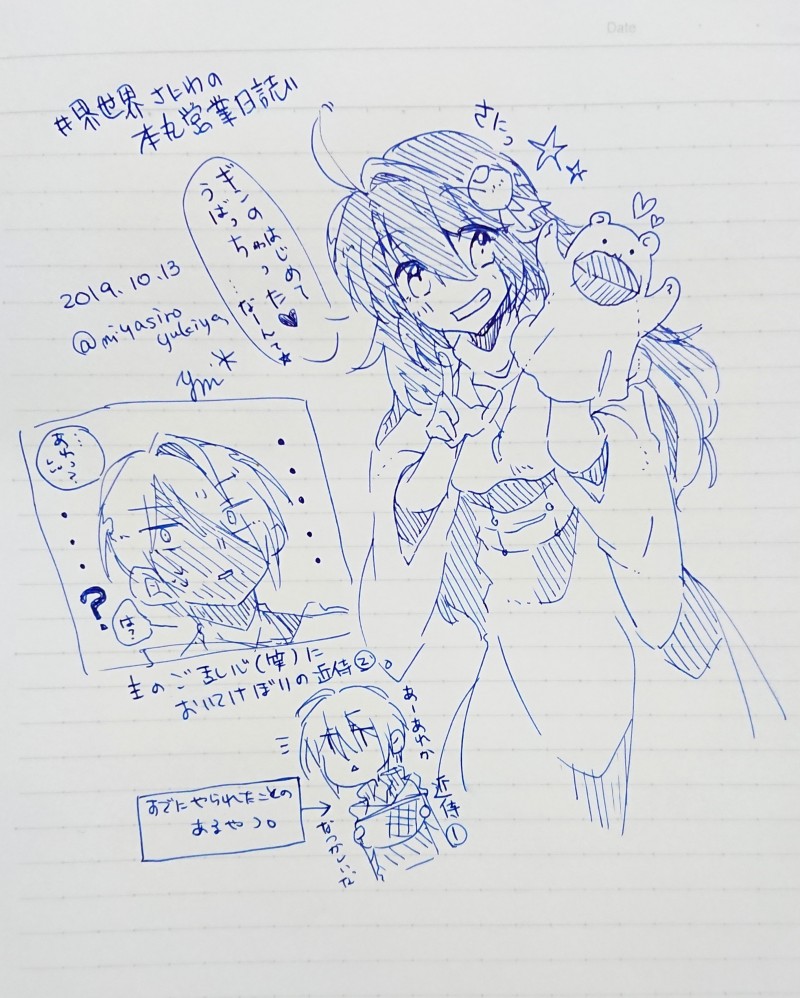 Date
#異世界さにわの
本丸営業日誌!!
さにっ
ギンのはじめて
うばっちゃった♥
なーんて★
2019.10.13
@miyasiro
yukiya
ym*
…あれっ?
・・・・・・?
は?
主のご乱心(笑)に
おいてけぼりの近侍②。
あーあれか
近侍①
なつかしいな
すでにやられたことの
あるやつ。